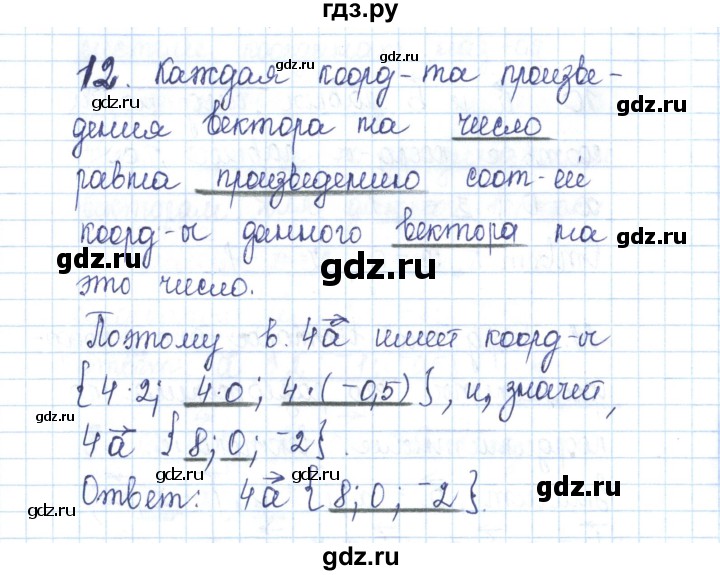 гдз.ру
12. Каждая коорд-та произве-
дения вектора на число
равна произведению соот-ей
коорд-ы данного вектора на
это число.
Поэтому в. 4a⃗ имеет коорд-ы
{4·2; 4·0; 4·(-0,5)}, и, значит,
4a⃗ {8; 0; -2}.
Ответ: 4a⃗ {8; 0; -2}.
gdz.ru
gdz.ru
gdz.ru
gdz.ru
gdz.ru
gdz.ru
gdz.ru
gdz.ru
gdz.ru
gdz.ru
gdz.ru
gdz.ru
gdz.ru
gdz.ru